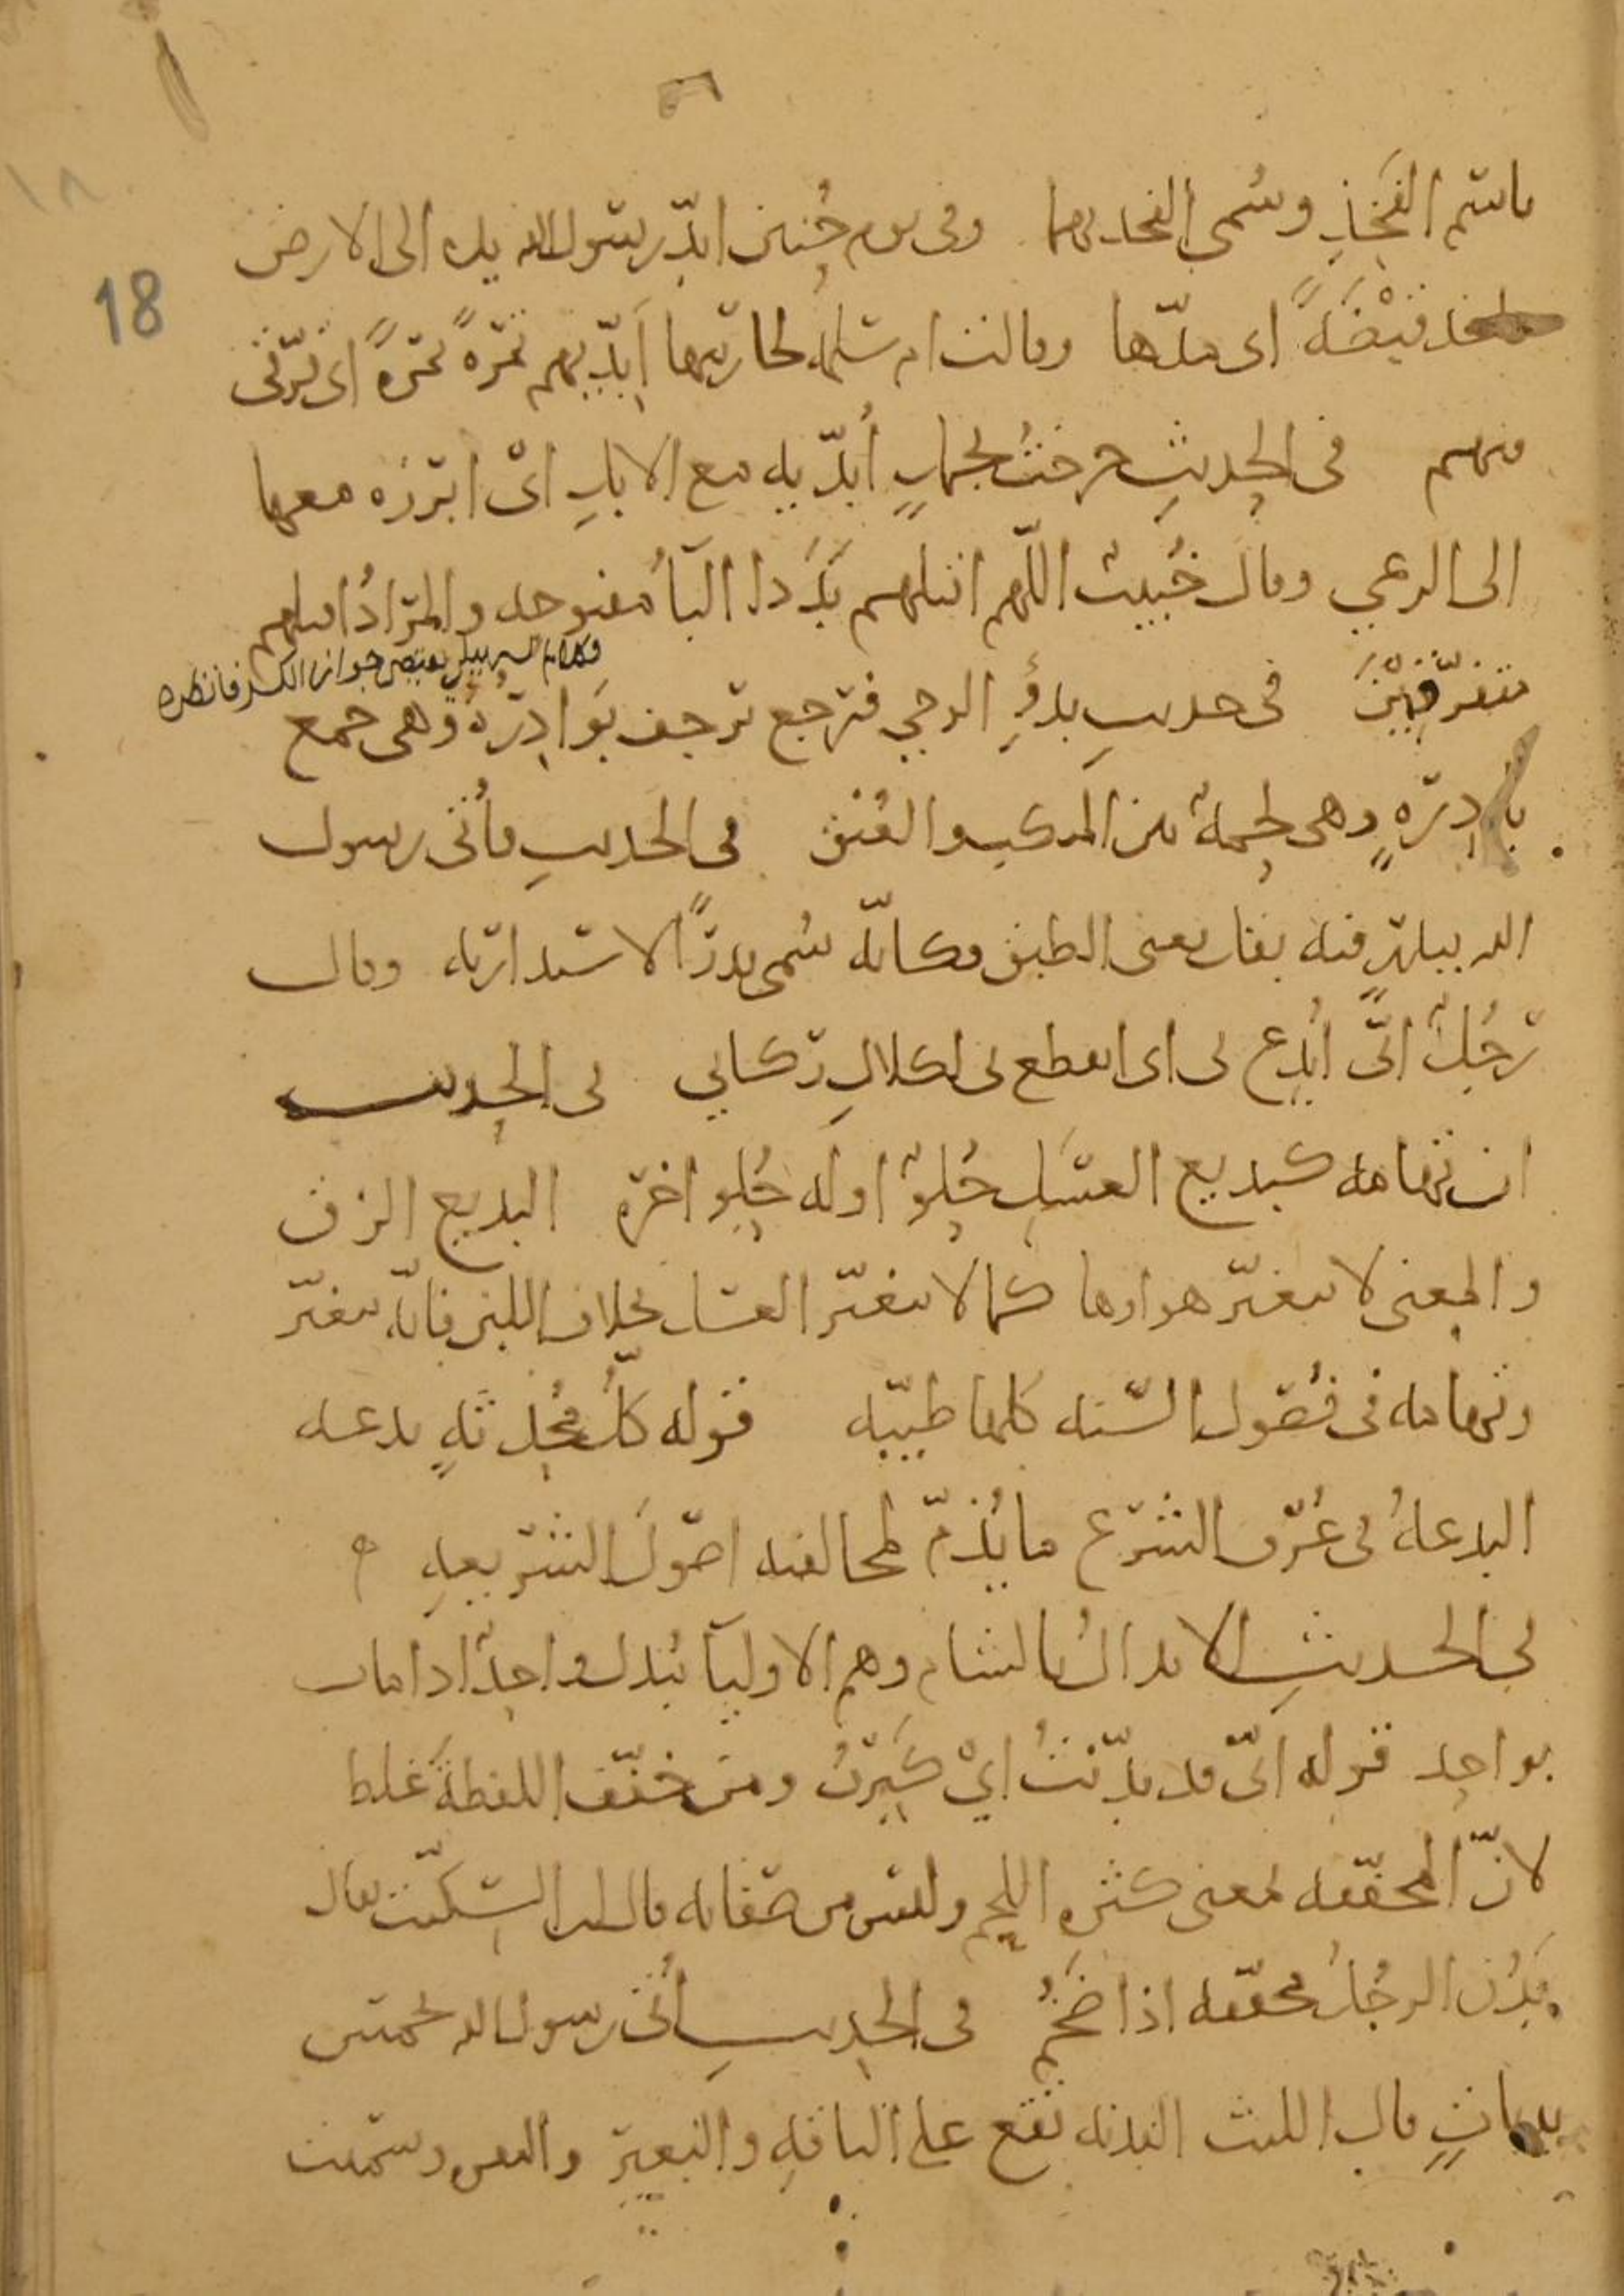 18
١٨
ما يستر الفَخِذِ وسُمى الفخذ بهما وفى يوم حُنين ابدّ رسول الله يده الى الارض
فاخذ قبْضَةً اى مدّها وقالت ام سلمة لجاريتها اَبِدّيهم تمرةً تمرةً اى فرّقى
فيهم فى الحديثِ خرجتُ بحمارٍ أُبدّيه مع الابلِ اىْ ابرزه معها
الى الرعي وقال خُبيب اللّهم اقتلهم بَدَدا البآءُ مفتوحه والمرادُ اقتلهم
وكلام السهيلي يقتضى جواز الكسر فانظره
متفرّقِيْنَ فى حديثِ بدْوِ الوحي فرجع ترجف بَوَادِرُهُ وهى جمع
بادِرَةٍ وهى لحمة بين المنكب والعُنق فى الحديثِ فأُتى رسول
الله ببدرٍ فيه بقل يعنى الطبق وكانّه سُمى بدرًا لاستدارته وقال
رَجُلٌ انّى أُبدِع بى اى انقطع بى لكلالِ ركابي فى الحديث
ان تهامه كبديع العسَلِ حُلوٌ اوله حُلو اخره البديع الزق
والمعنى لا يتغيّر هواوها كما لا يتغيّر العسل بخلاف اللبن فانّه يتغيّر
وتهامه فى فُصول السّنه كلها طيّبه قوله كلُّ مُحدثةٍ بدعه
البدعةُ فى عُرف الشرع ما يُذمّ لمخالفته اصولَ الشريعةِ ه
فى الحديثِ الابدالُ بالشام وهم الاوليآ يُبدل واحدٌ اذا مات
بواحِد قوله انّى قد بدّنتُ ايْ كَبِرْتُ ومن خفّف اللفظةَ غلط
لانّ المخففه بمعنى كثره اللحم وليس من صفاته قال ابن السِّكّيت يقال
بَدُن الرجُلُ مخففه اذا ضَخُم فى الحديثِ أُتى رسول الله بخمس
بدناتٍ قال الليث البدنه تقع على الناقهِ والبعيرِ والبقر وسُمّيت